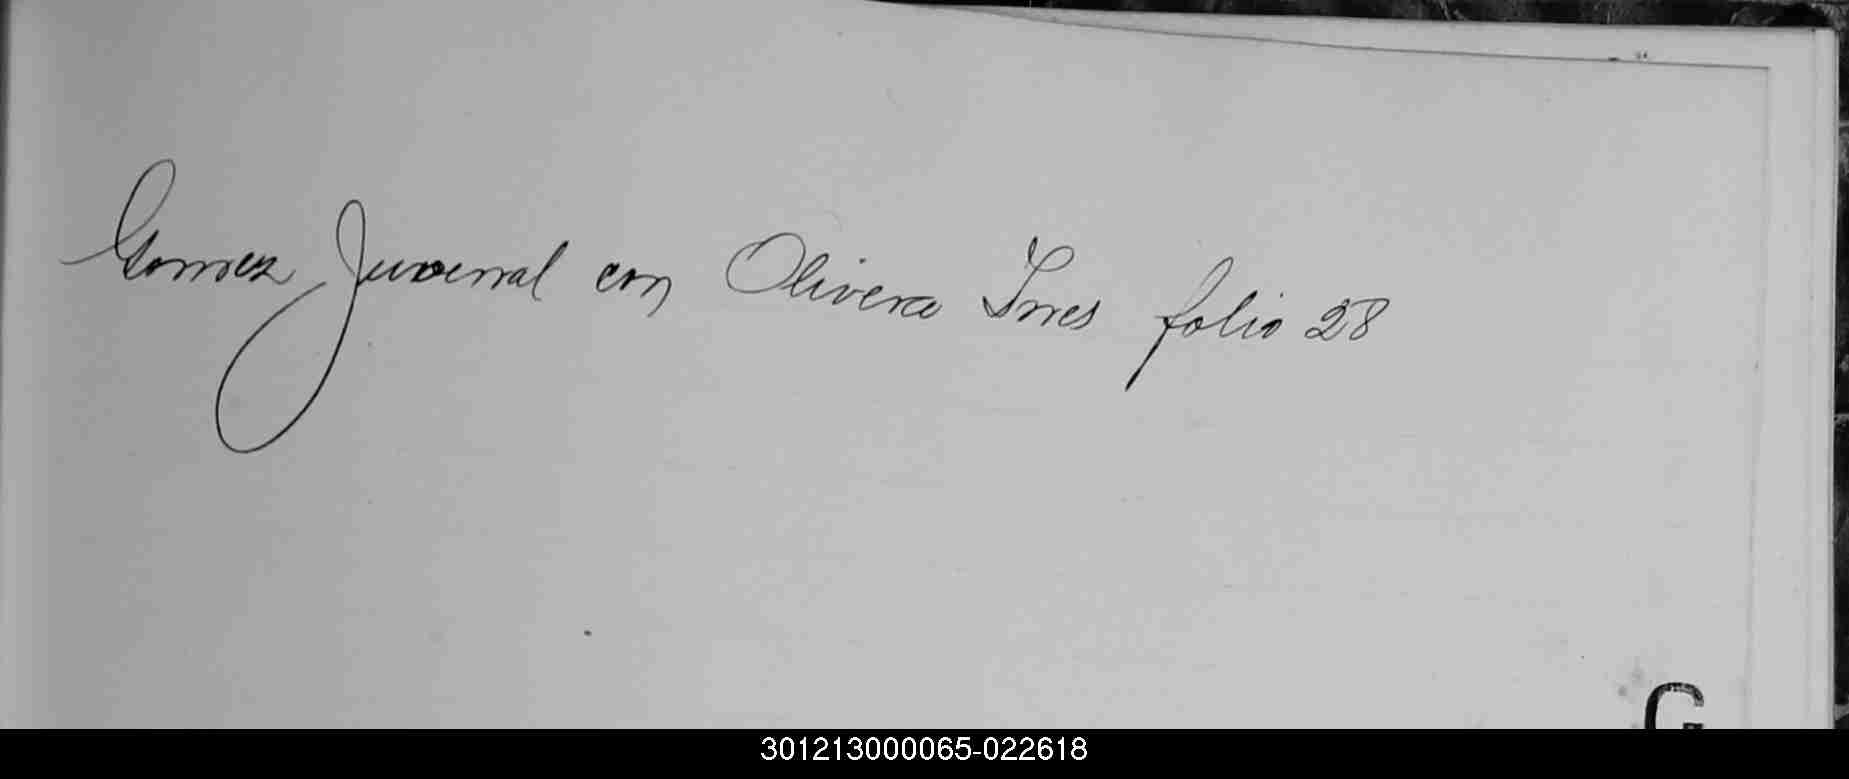 Gomez Juvenal con Olivera Ynes folio 28
G
301213000065-022618